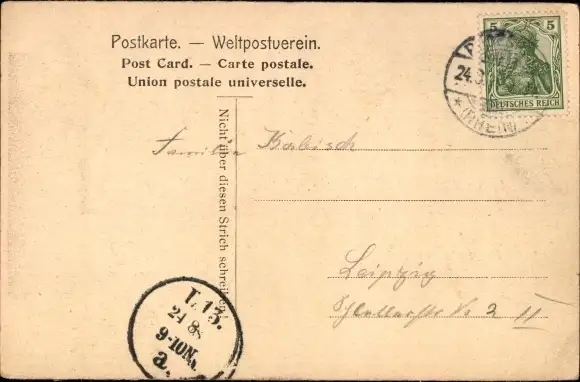 Postkarte. — Weltpostverein.
Post Card. — Carte postale.
Union postale universelle.
5 5
DEUTSCHES REICH
24.
(RHEIN)
Nicht über diesen Strich schreiben
Familie
Leipzig
2 II
L. 13.
24 8
9-10N.
a.